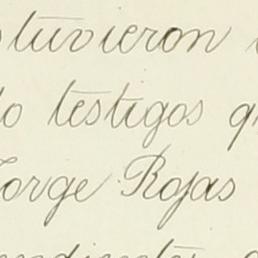 stuvieron
do testigos q
Jorge Rojas